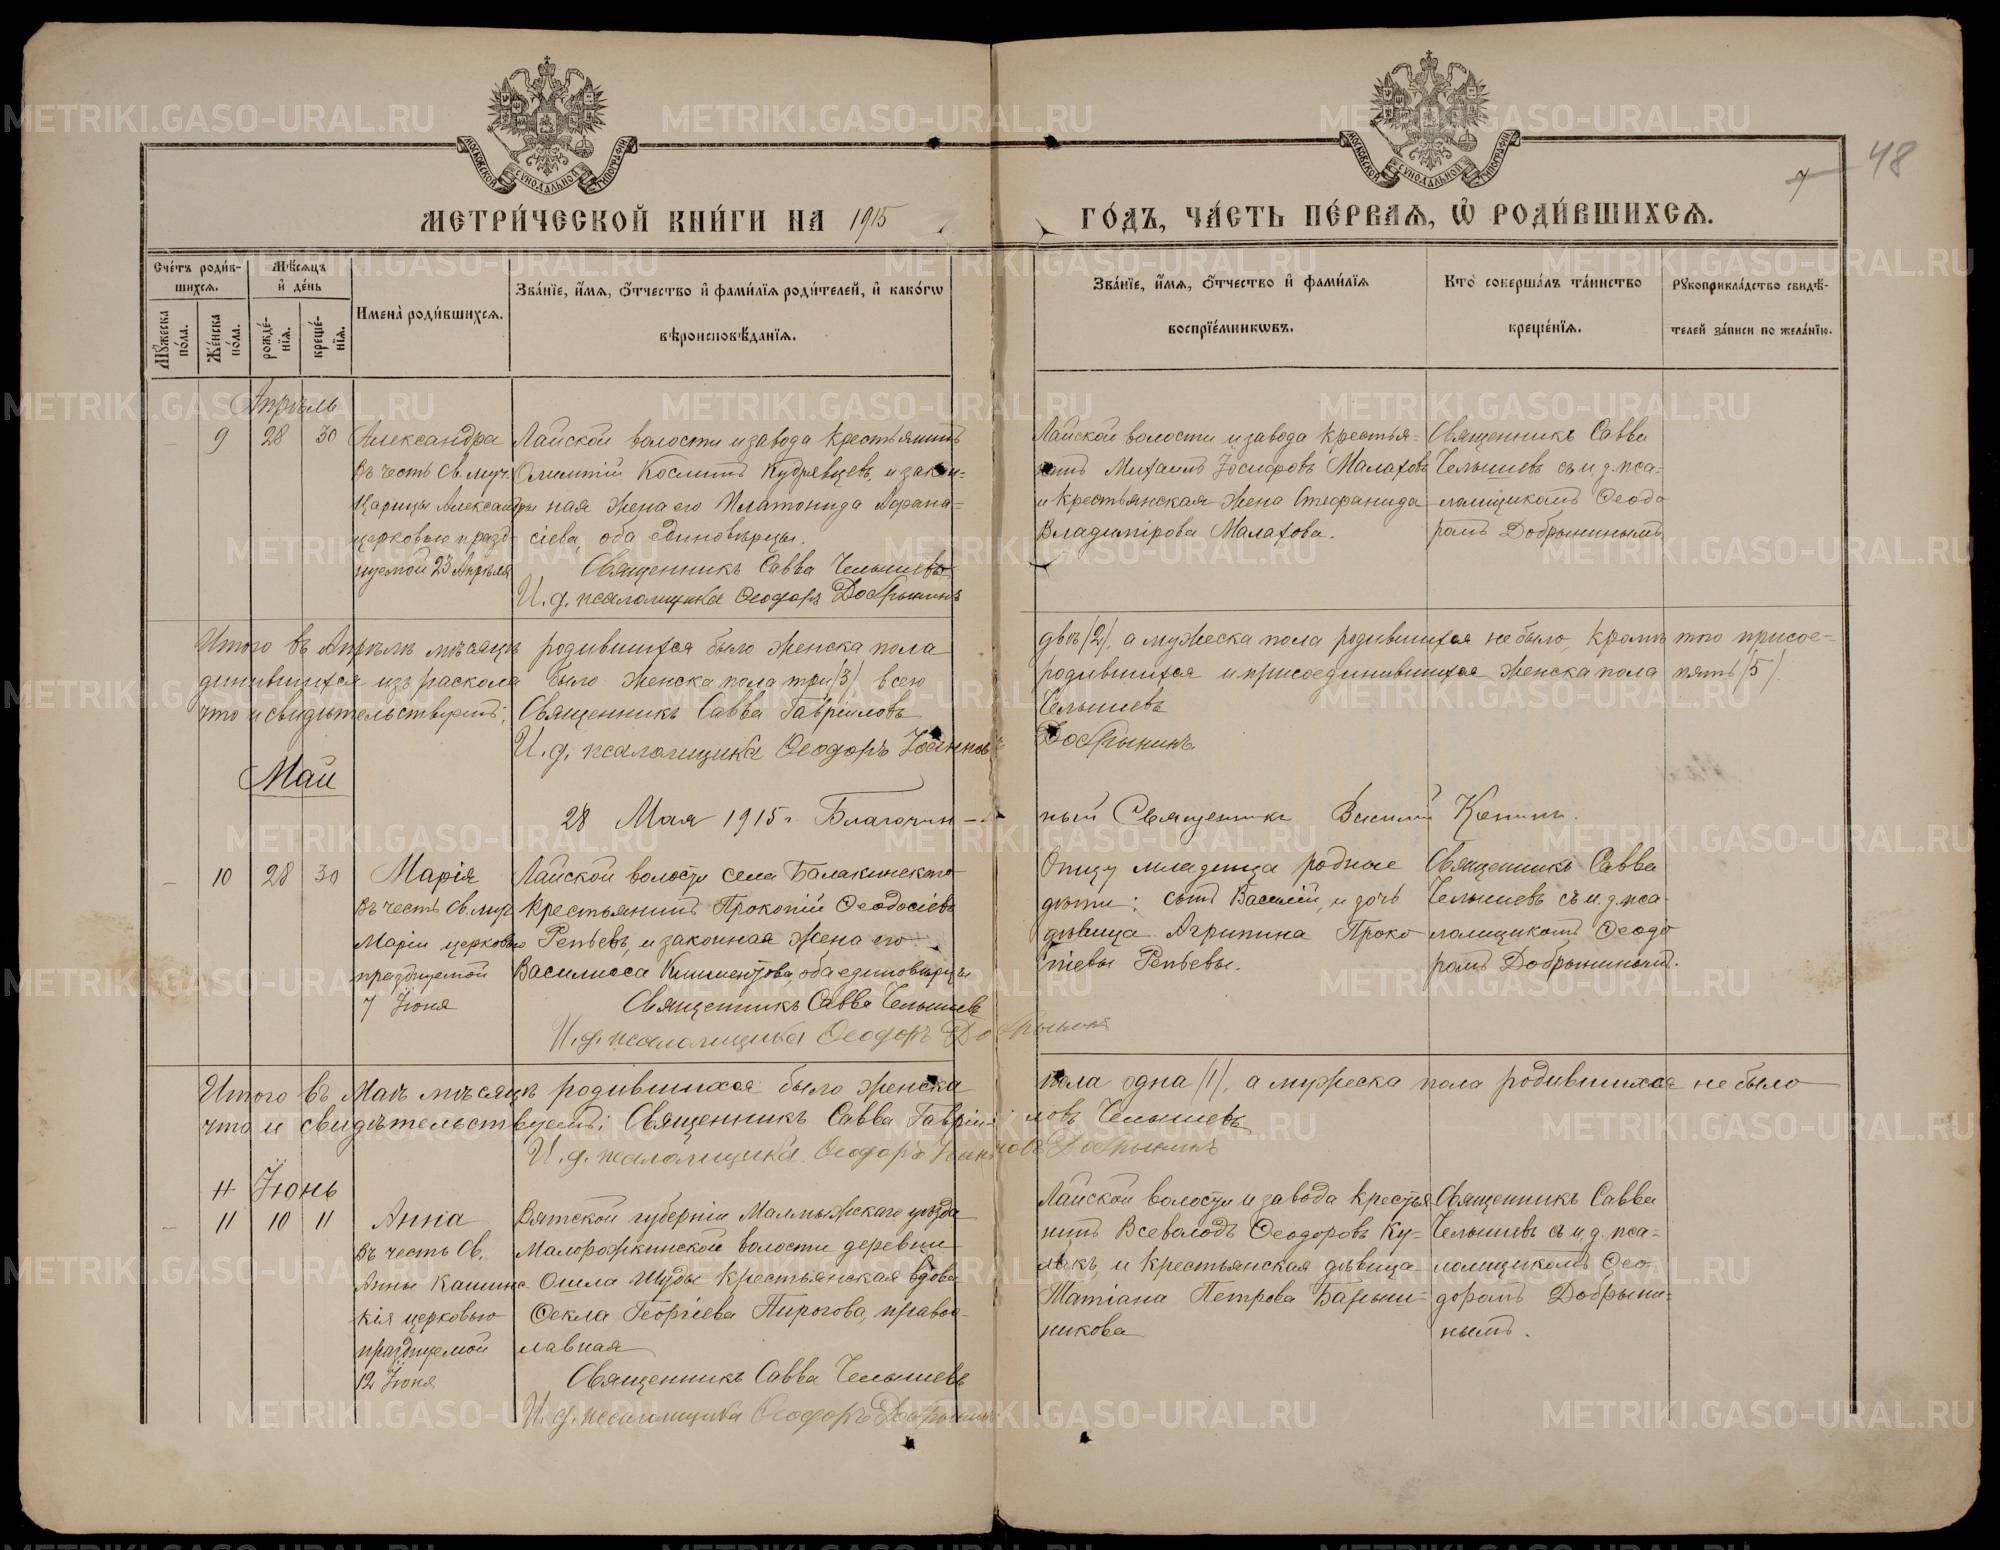 МЕТРИ́ЧЕСКОЙ КНИ́ГИ НА 1915 ГО́ДЪ, ЧА́СТЬ ПЕ́РВАѦ, Ѡ҆ РОДИ́ВШИХСѦ.
7 48
Сче́тъ роди́в-шихсѧ.
Мѣ́сѧцъ и҆ де́нь
Мꙋ́жеска по́ла.
Же́нска по́ла.
рожде́-нїѧ.
креще́-нїѧ.
Имена̀ роди́вшихсѧ.
Зва́нїе, и҆́мѧ, ѻ҆́тчество и҆ фами́лїѧ роди́телей, и҆ како́гѡ вѣроисповѣ́данїѧ.
Зва́нїе, и҆́мѧ, ѻ҆́тчество и҆ фами́лїѧ воспрїе́мникѡвъ.
Кто̀ соверша́лъ та́инство креще́нїѧ.
Рꙋкоприкла́дство свидѣ́-телей за́писи по жела́нїю.
Апрѣль
9 28 30
Александра
Въ честь Св. муч.
Царицы Александры
церковью празд-
нуемой 23 Апрѣля
Лайской волости и завода крестьянинъ
Олимпій Косминъ Кудрявцевъ, и закон-
ная жена его Платонида Афана-
сіева, оба единовѣрцы.
Священникъ Савва Челышевъ
И. д. псаломщика Ѳеодоръ Добрынинъ
Лайской волости и завода крестья-
нинъ Михаилъ Іосифовъ Малаховъ
и крестьянская жена Стефанида
Владимірова Малахова.
Священникъ Савва
Челышевъ съ и. д. пса-
ломщикомъ Ѳеодо
ромъ Добрынинымъ
Итого въ Апрѣлѣ мѣсяцѣ родившихся было женска пола двѣ (2), а мужеска пола родившихся не было, кромѣ того присое-
динившихся изъ раскола было женска пола три (3) всего родившихся и присоединившихся женска пола пять (5)
что и свидѣтельствуемъ; Священникъ Савва Гавріиловъ Челышевъ
И. д. псаломщика Ѳеодоръ Іоанновъ Добрынинъ
Май
28 Мая 1915 г. Благочин-ный Священникъ Василій
10 28 30
Марія
Въ честь Св. мур
Маріи церковью
празднуемой
7 Іюня
Лайской волости села Балакинского
крестьянинъ Прокопій Ѳеодосіевъ
Репьевъ, и законная жена его
Василисса Климентова, оба единовѣрцы
Священникъ Савва Челышевъ
И. д. псаломщика Ѳеодоръ Добрынинъ
Отцу младенца родные
дѣти: сынъ Василій, и дочь
дѣвица Агрипина Проко
піевы Репьевы.
Священникъ Савва
Челышевъ съ и. д. пса-
ломщикомъ Ѳеодо
ромъ Добрынинымъ.
Итого въ Маѣ мѣсяцѣ родившихся было женска пола одна (1), а мужеска пола родившихся не было
что и свидѣтельствуемъ; Священникъ Савва Гавріиловъ Челышевъ
И. д. псаломщика Ѳеодоръ Іоанновъ Добрынинъ
Іюнь
11 10 11
Анна
Въ честь Св.
Анны Кашинс
кія церковью
празднуемой
12 Іюня
Вятской губерніи Малмыжскаго уѣзда
Малорожкинской волости деревни
Ошла Шуды крестьянская вдова
Ѳекла Георгіева Пирогова, правос-
лавная
Священникъ Савва Челышевъ
И. д. псаломщика Ѳеодоръ Добрынинъ
Лайской волости и завода крестья
нинъ Всеволодъ Ѳеодоровъ Ку-
ликъ, и крестьянская дѣвица
Татіана Петрова Барыш-
никова
Священникъ Савва
Челышевъ съ и. д. пса-
ломщикомъ Ѳео-
доромъ Добрыни-
нымъ.
METRIKI.GASO-URAL.RU